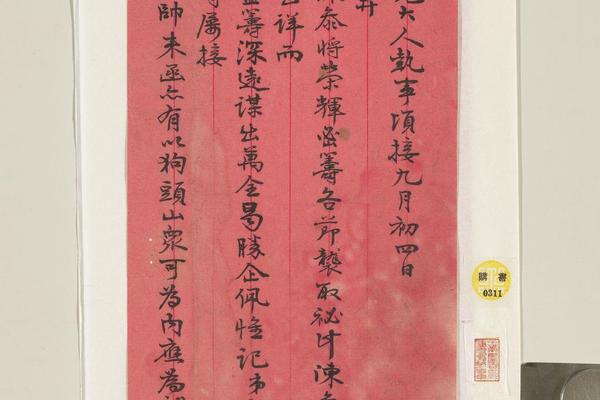 大人執事頃接九月初四日
泰將榮輝密籌各節襲取祕計陳
詳而
籌深遠謀出萬全曷勝企佩惟記弟
屢接
帥來函亦有以狗頭山眾可為內應為
購書
0311